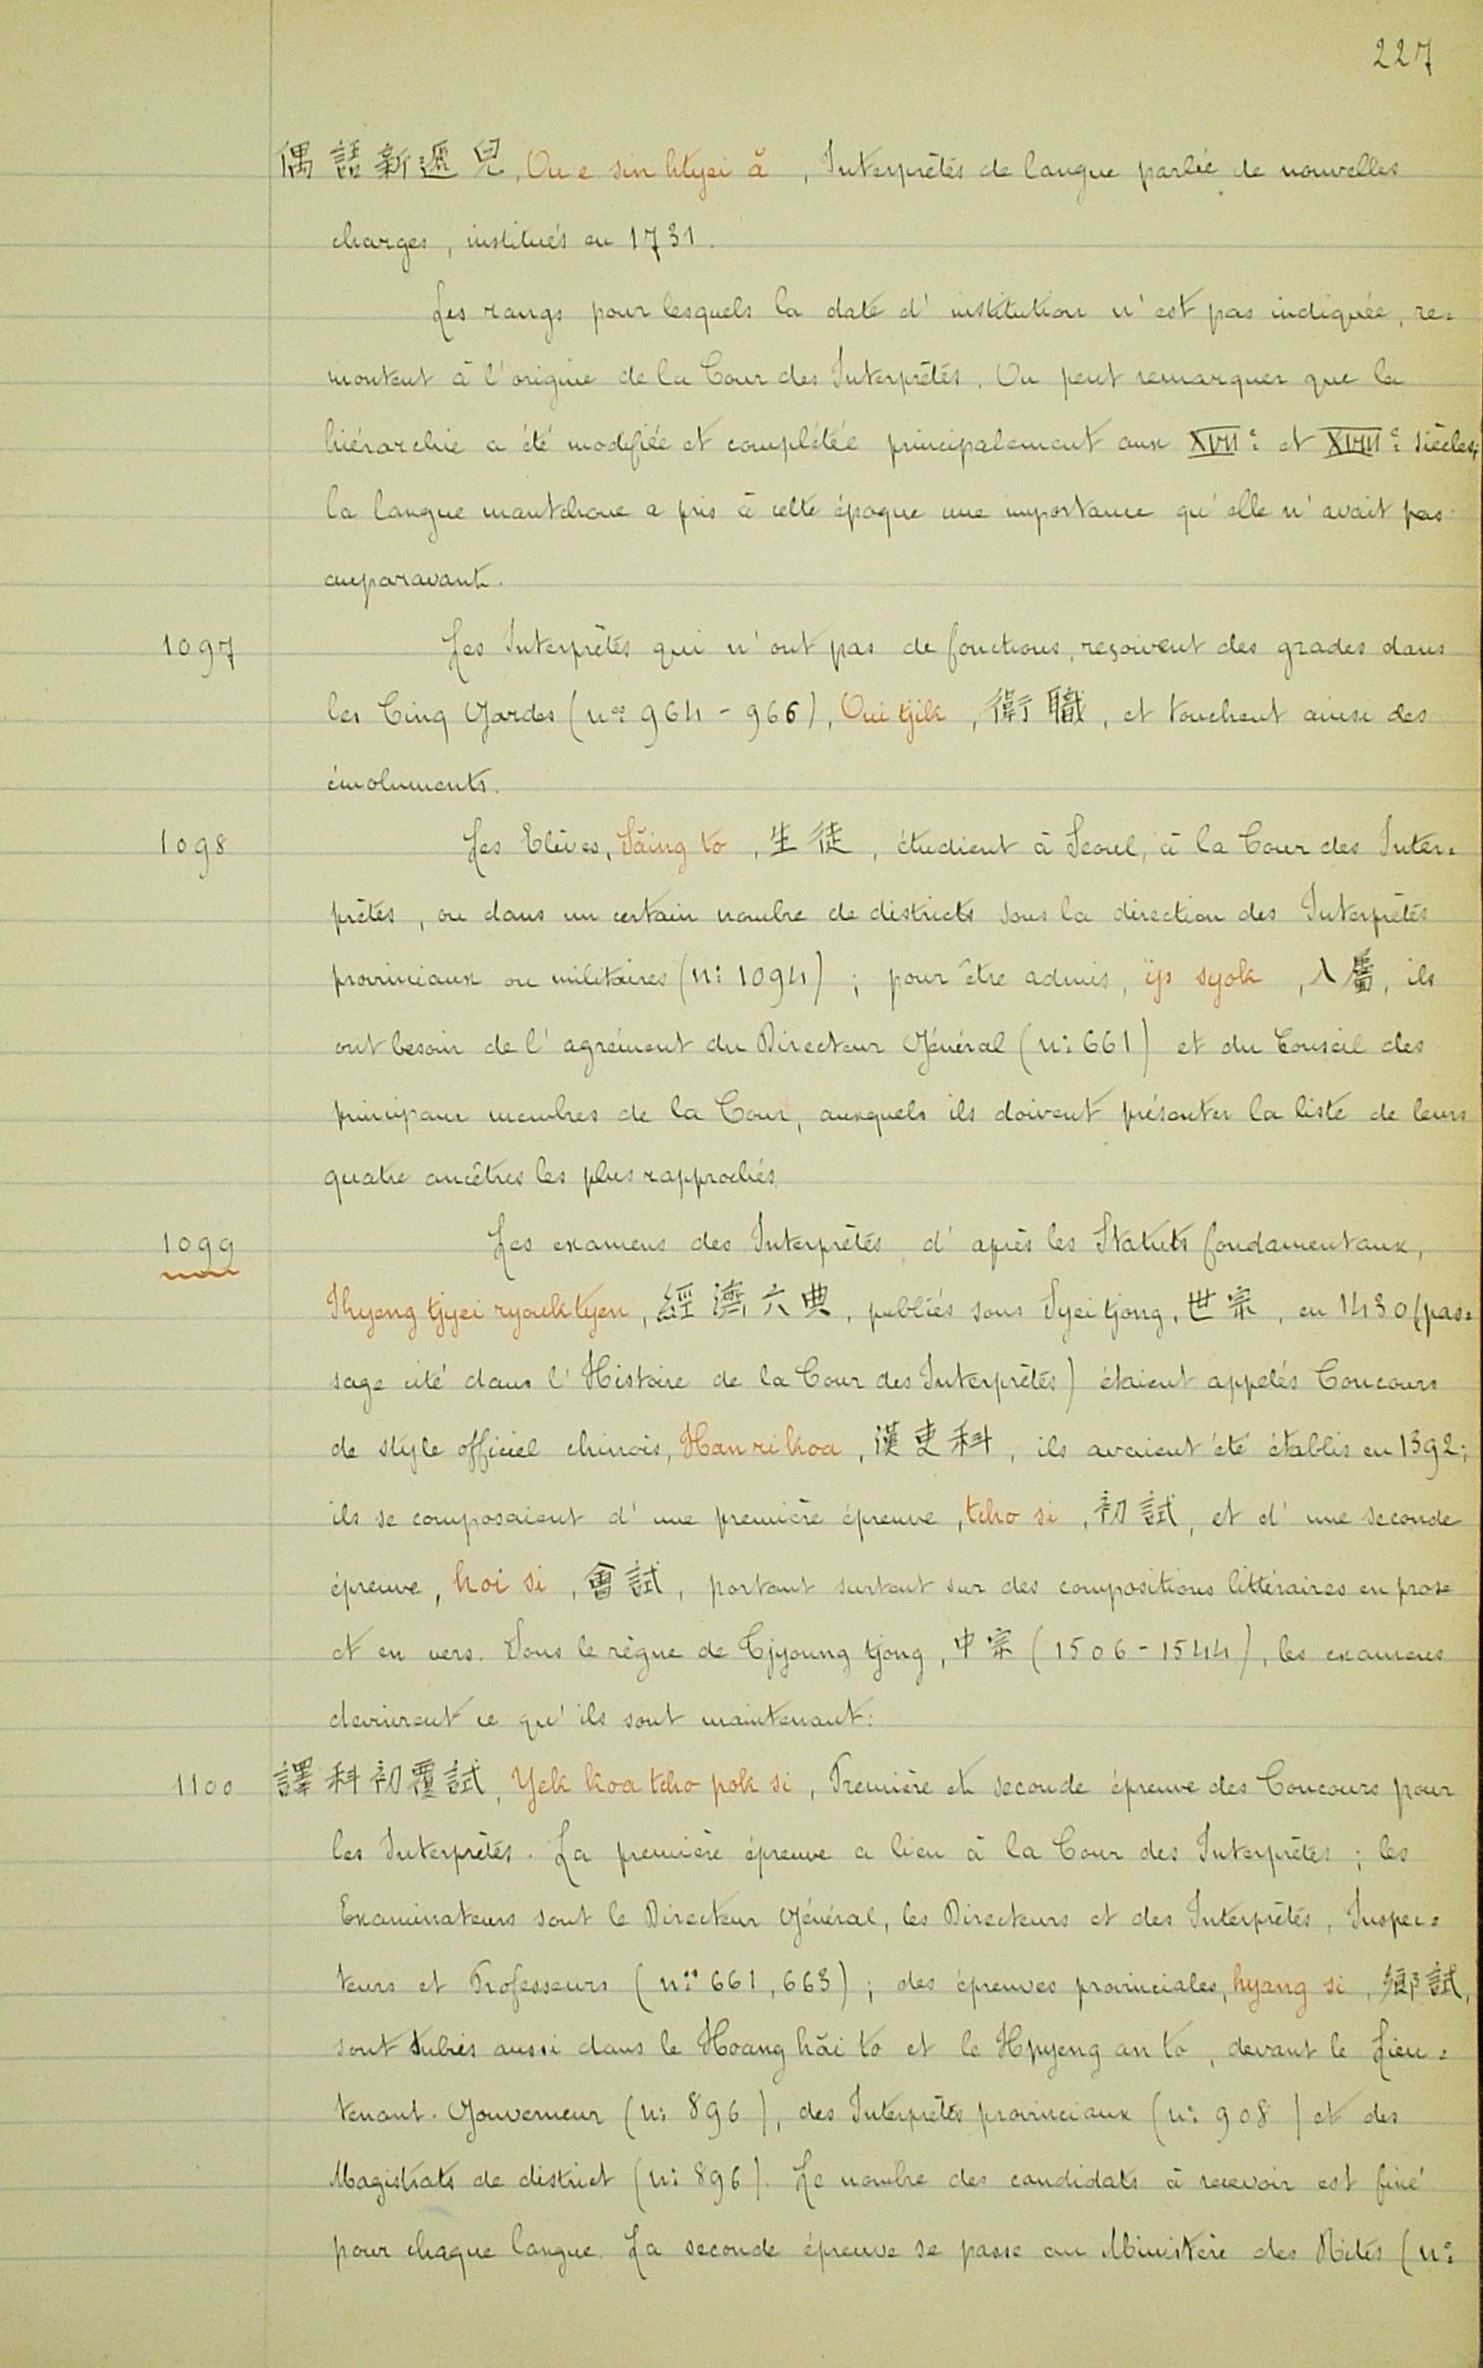 227
偶語新遞兒, Ou e sin htyei ă, Interprètes de langue parlée de nouvelles
charges, institués en 1731.
Les rangs pour lesquels la date d'institution n'est pas indiquée, re=
montent à l'origine de la Cour des Interprètes. On peut remarquer que la
hiérarchie a été modifiée et complétée principalement aux XVIIe et XVIIIe siècles;
la langue mantchoue a pris à cette époque une importance qu'elle n'avait pas
auparavant.
1097 Les Interprètes qui n'ont pas de fonctions, reçoivent des grades dans
les Cinq Gardes (nos 964 - 966), Oui tjik, 衛職, et touchent ainsi des
émoluments.
1098 Les Elèves, Săing to, 生徒, étudient à Seoul, à la Cour des Inter=
prètes, ou dans un certain nombre de districts sous la direction des Interprètes
provinciaux ou militaires (no 1094); pour être admis, ip syok, 入屬, ils
ont besoin de l'agrément du Directeur Général (no 661) et du Conseil des
principaux membres de la Cour, auxquels ils doivent présenter la liste de leurs
quatre ancêtres les plus rapprochés.
1099 Les examens des Interprètes, d'après les Statuts fondamentaux,
Kyeng tjyei ryouk tyen, 經濟六典, publiés sous Syei tjong, 世宗, en 1430 (pas=
sage cité dans l'Histoire de la Cour des Interprètes) étaient appelés Concours
de style officiel chinois, Han ri koa, 漢吏科, ils avaient été établis en 1392;
ils se composaient d'une première épreuve, tcho si, 初試, et d'une seconde
épreuve, hoi si, 會試, portant surtout sur des compositions littéraires en prose
et en vers. Sous le règne de Tjyoung tjong, 中宗 (1506 - 1544), les examens
devinrent ce qu'ils sont maintenant:
1100 譯科初覆試, Yek koa tcho pok si, Première et seconde épreuve des Concours pour
les Interprètes. La première épreuve a lieu à la Cour des Interprètes; les
Examinateurs sont le Directeur Général, les Directeurs et des Interprètes, Inspec=
teurs et Professeurs (nos 661, 663); des épreuves provinciales, hyang si, 鄕試,
sont subies aussi dans le Hoang hăi to et le Hpyeng an to, devant le Lieu=
tenant-Gouverneur (no 896), des Interprètes provinciaux (no 908) et des
Magistrats de district (no 896). Le nombre des candidats à recevoir est fixé
pour chaque langue. La seconde épreuve se passe au Ministère des Rites (no